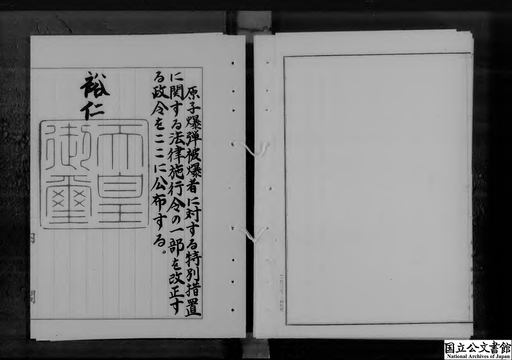 原子爆弾被爆者に対する特別措置
に関する法律施行令の一部を改正す
る政令をここに公布する。
裕仁
天皇
御璽
内閣
国立公文書館
National Archives of Japan